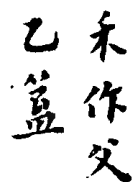 禾作父
乙簋